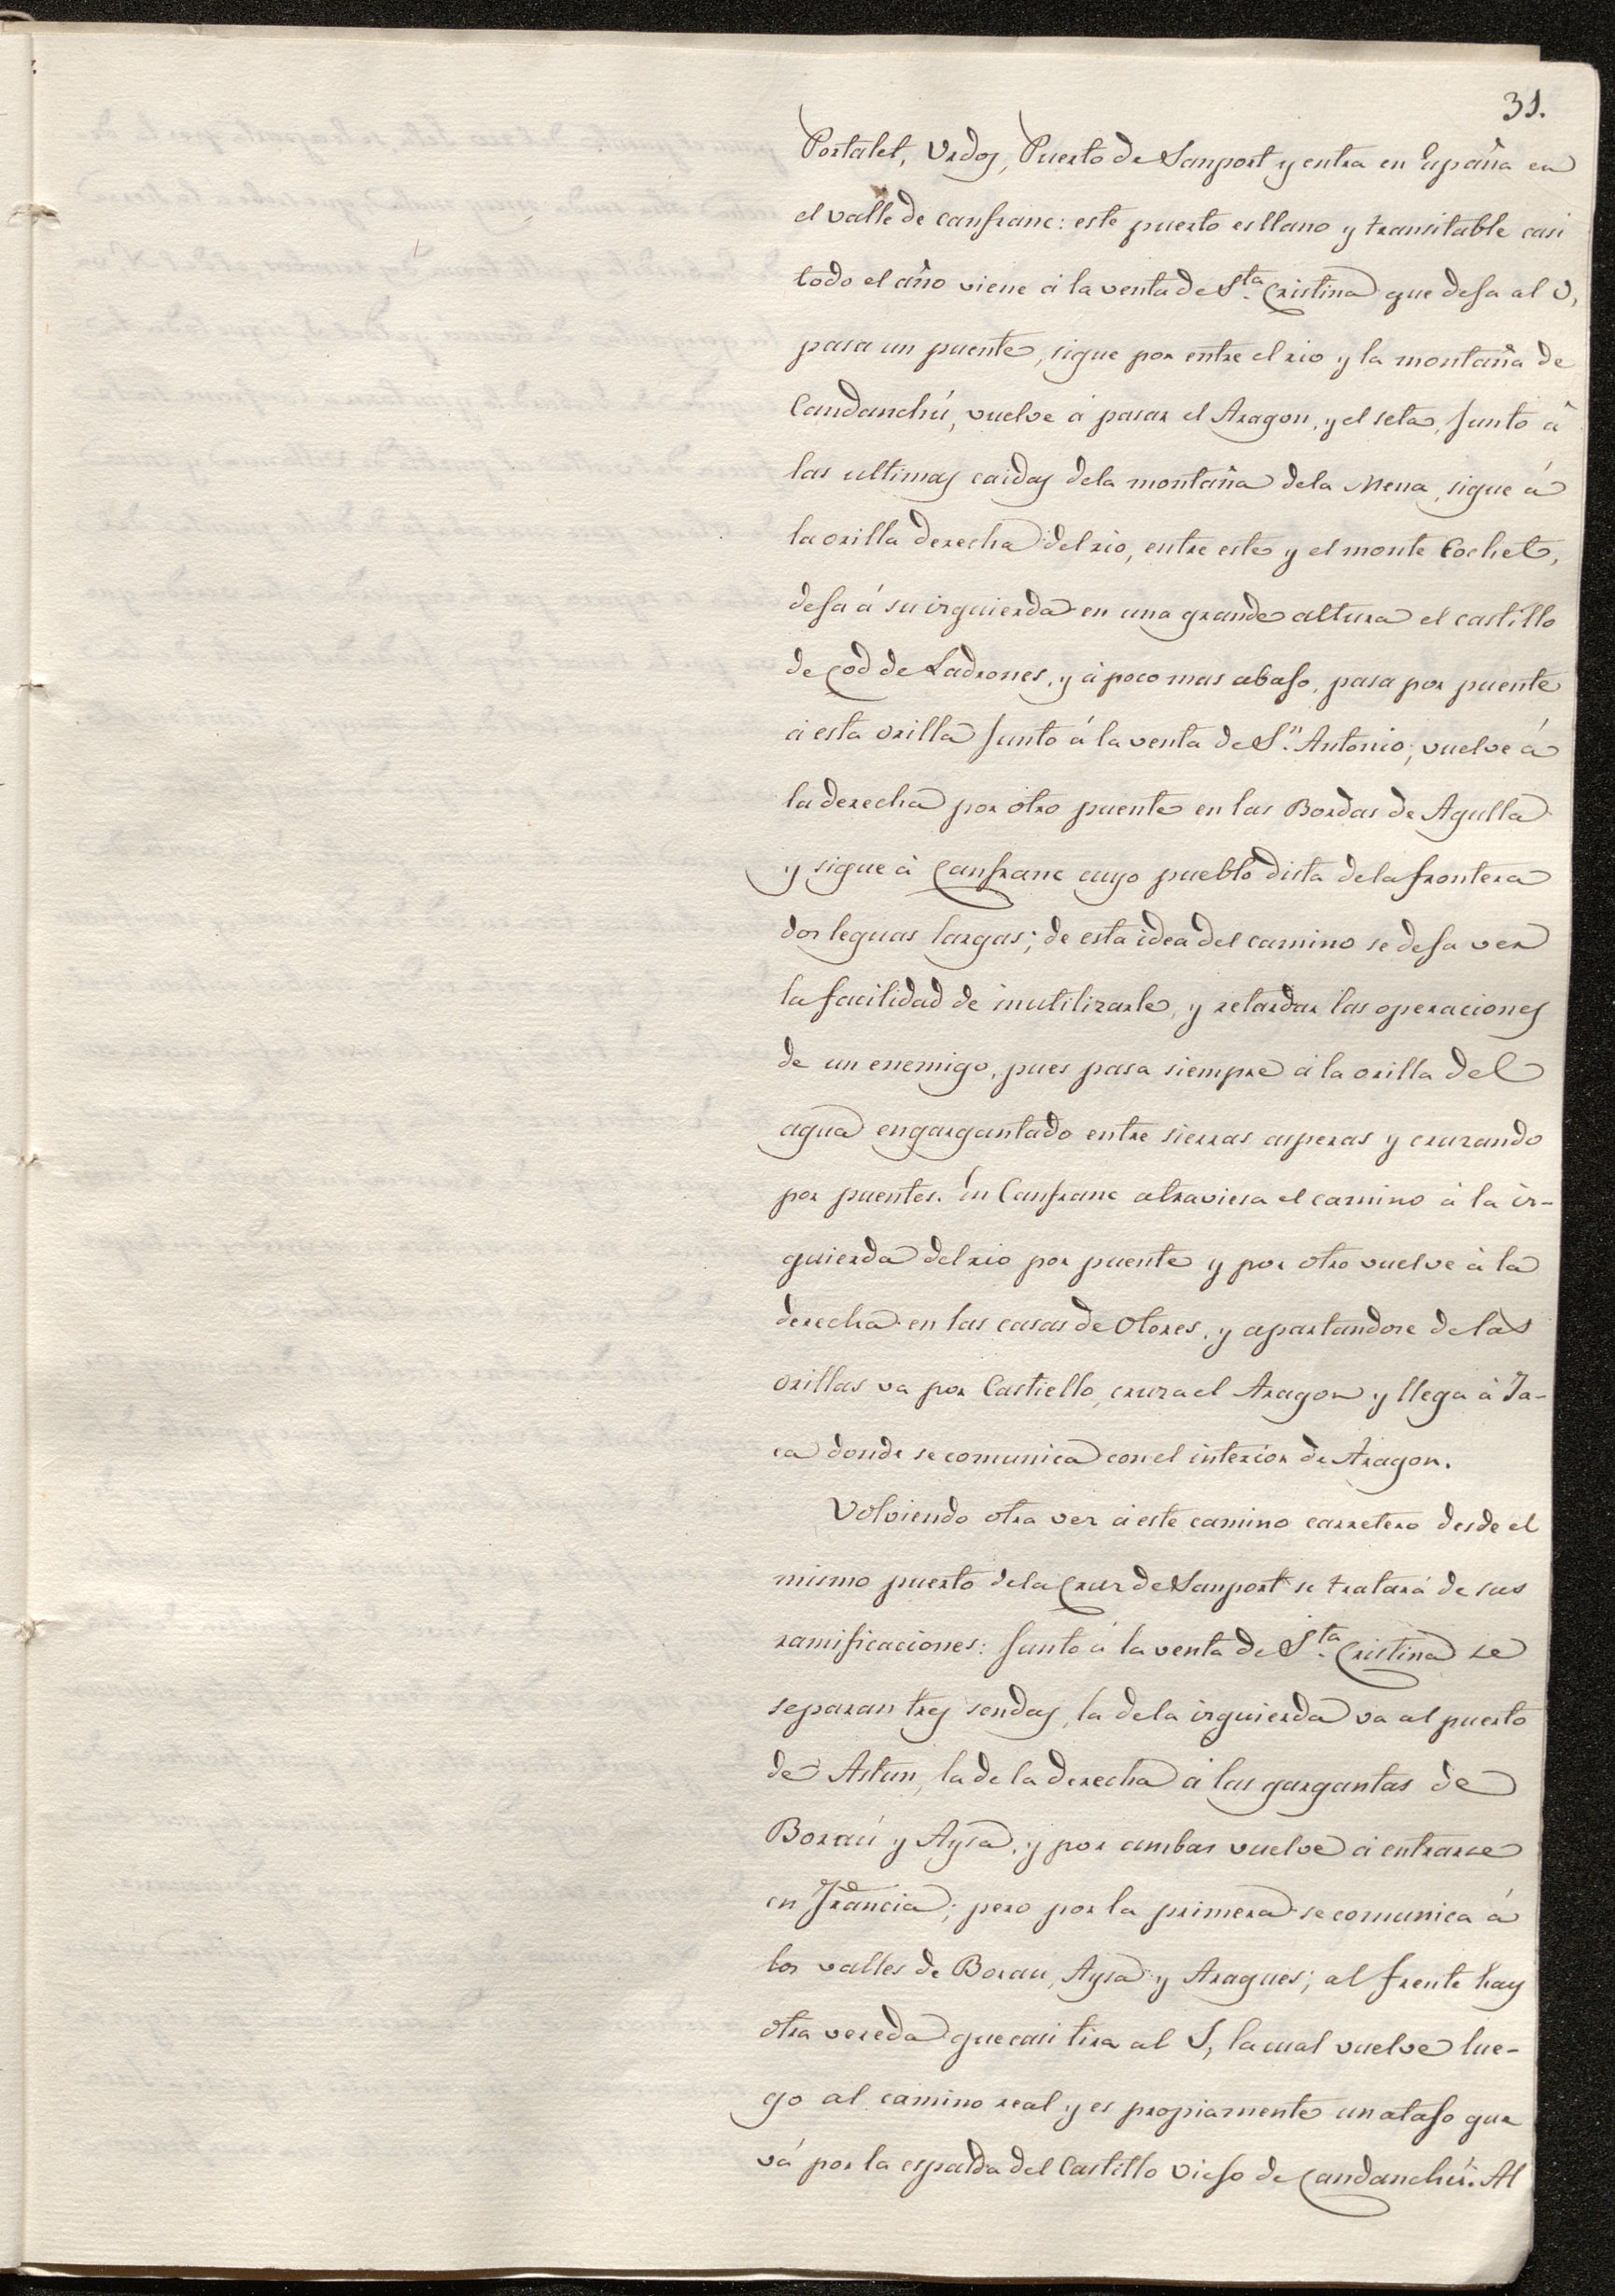 31.
Portalet, Urdos, Puerto de Sanport y entra en España en
el valle de Canfranc: este puerto es llano y transitable casi
todo el año viene á la venta de Sta. Cristina que deja al O,
pasa un puente, sigue por entre el rio y la montaña de
Candanchú, vuelve á pasar el Aragon, y el seta, junto á
las ultimas caidas dela montaña dela Mena, sigue á
la orilla derecha del rio, entre este y el monte Cochet,
deja á su izquierda en una grande altura el castillo
de Cod de Ladrones, y á poco mas abajo, pasa por puente
á esta orilla junto á la venta de Sn. Antonio; vuelve á
la derecha por otro puente en las Bordas de Agulla
y sigue á Canfranc cuyo pueblo dista dela frontera
dos leguas largas; de esta idea del camino se deja ver
la facilidad de inutilizarle, y retardar las operaciones
de un enemigo, pues pasa siempre á la orilla del
agua engargantado entre sierras asperas y cruzando
por puentes. En Canfranc atraviesa el camino á la iz-
quierda del rio por puente y por otro vuelve á la
derecha en las casas de Otores, y apartandose delas
orillas va por Castiello, cruza el Aragon y llega á Ja-
ca donde se comunica con el interior de Aragon.
Volviendo otra vez á este camino carretero desde el
mismo puerto dela Cruz de Sanport se tratará de sus
ramificaciones: junto á la venta de Sta. Cristina se
separan tres sendas, la dela izquierda va al puerto
de Astun, la de la derecha á las gargantas de
Boraú y Aysa, y por ambas vuelve á entrarse
en Francia; pero por la primera se comunica á
los valles de Borau, Aysa y Aragues; al frente hay
otra vereda que casi tira al S, la cual vuelve lue-
go al camino real y es propiamente un atajo que
vá por la espalda del Castillo viejo de Candanchú. Al